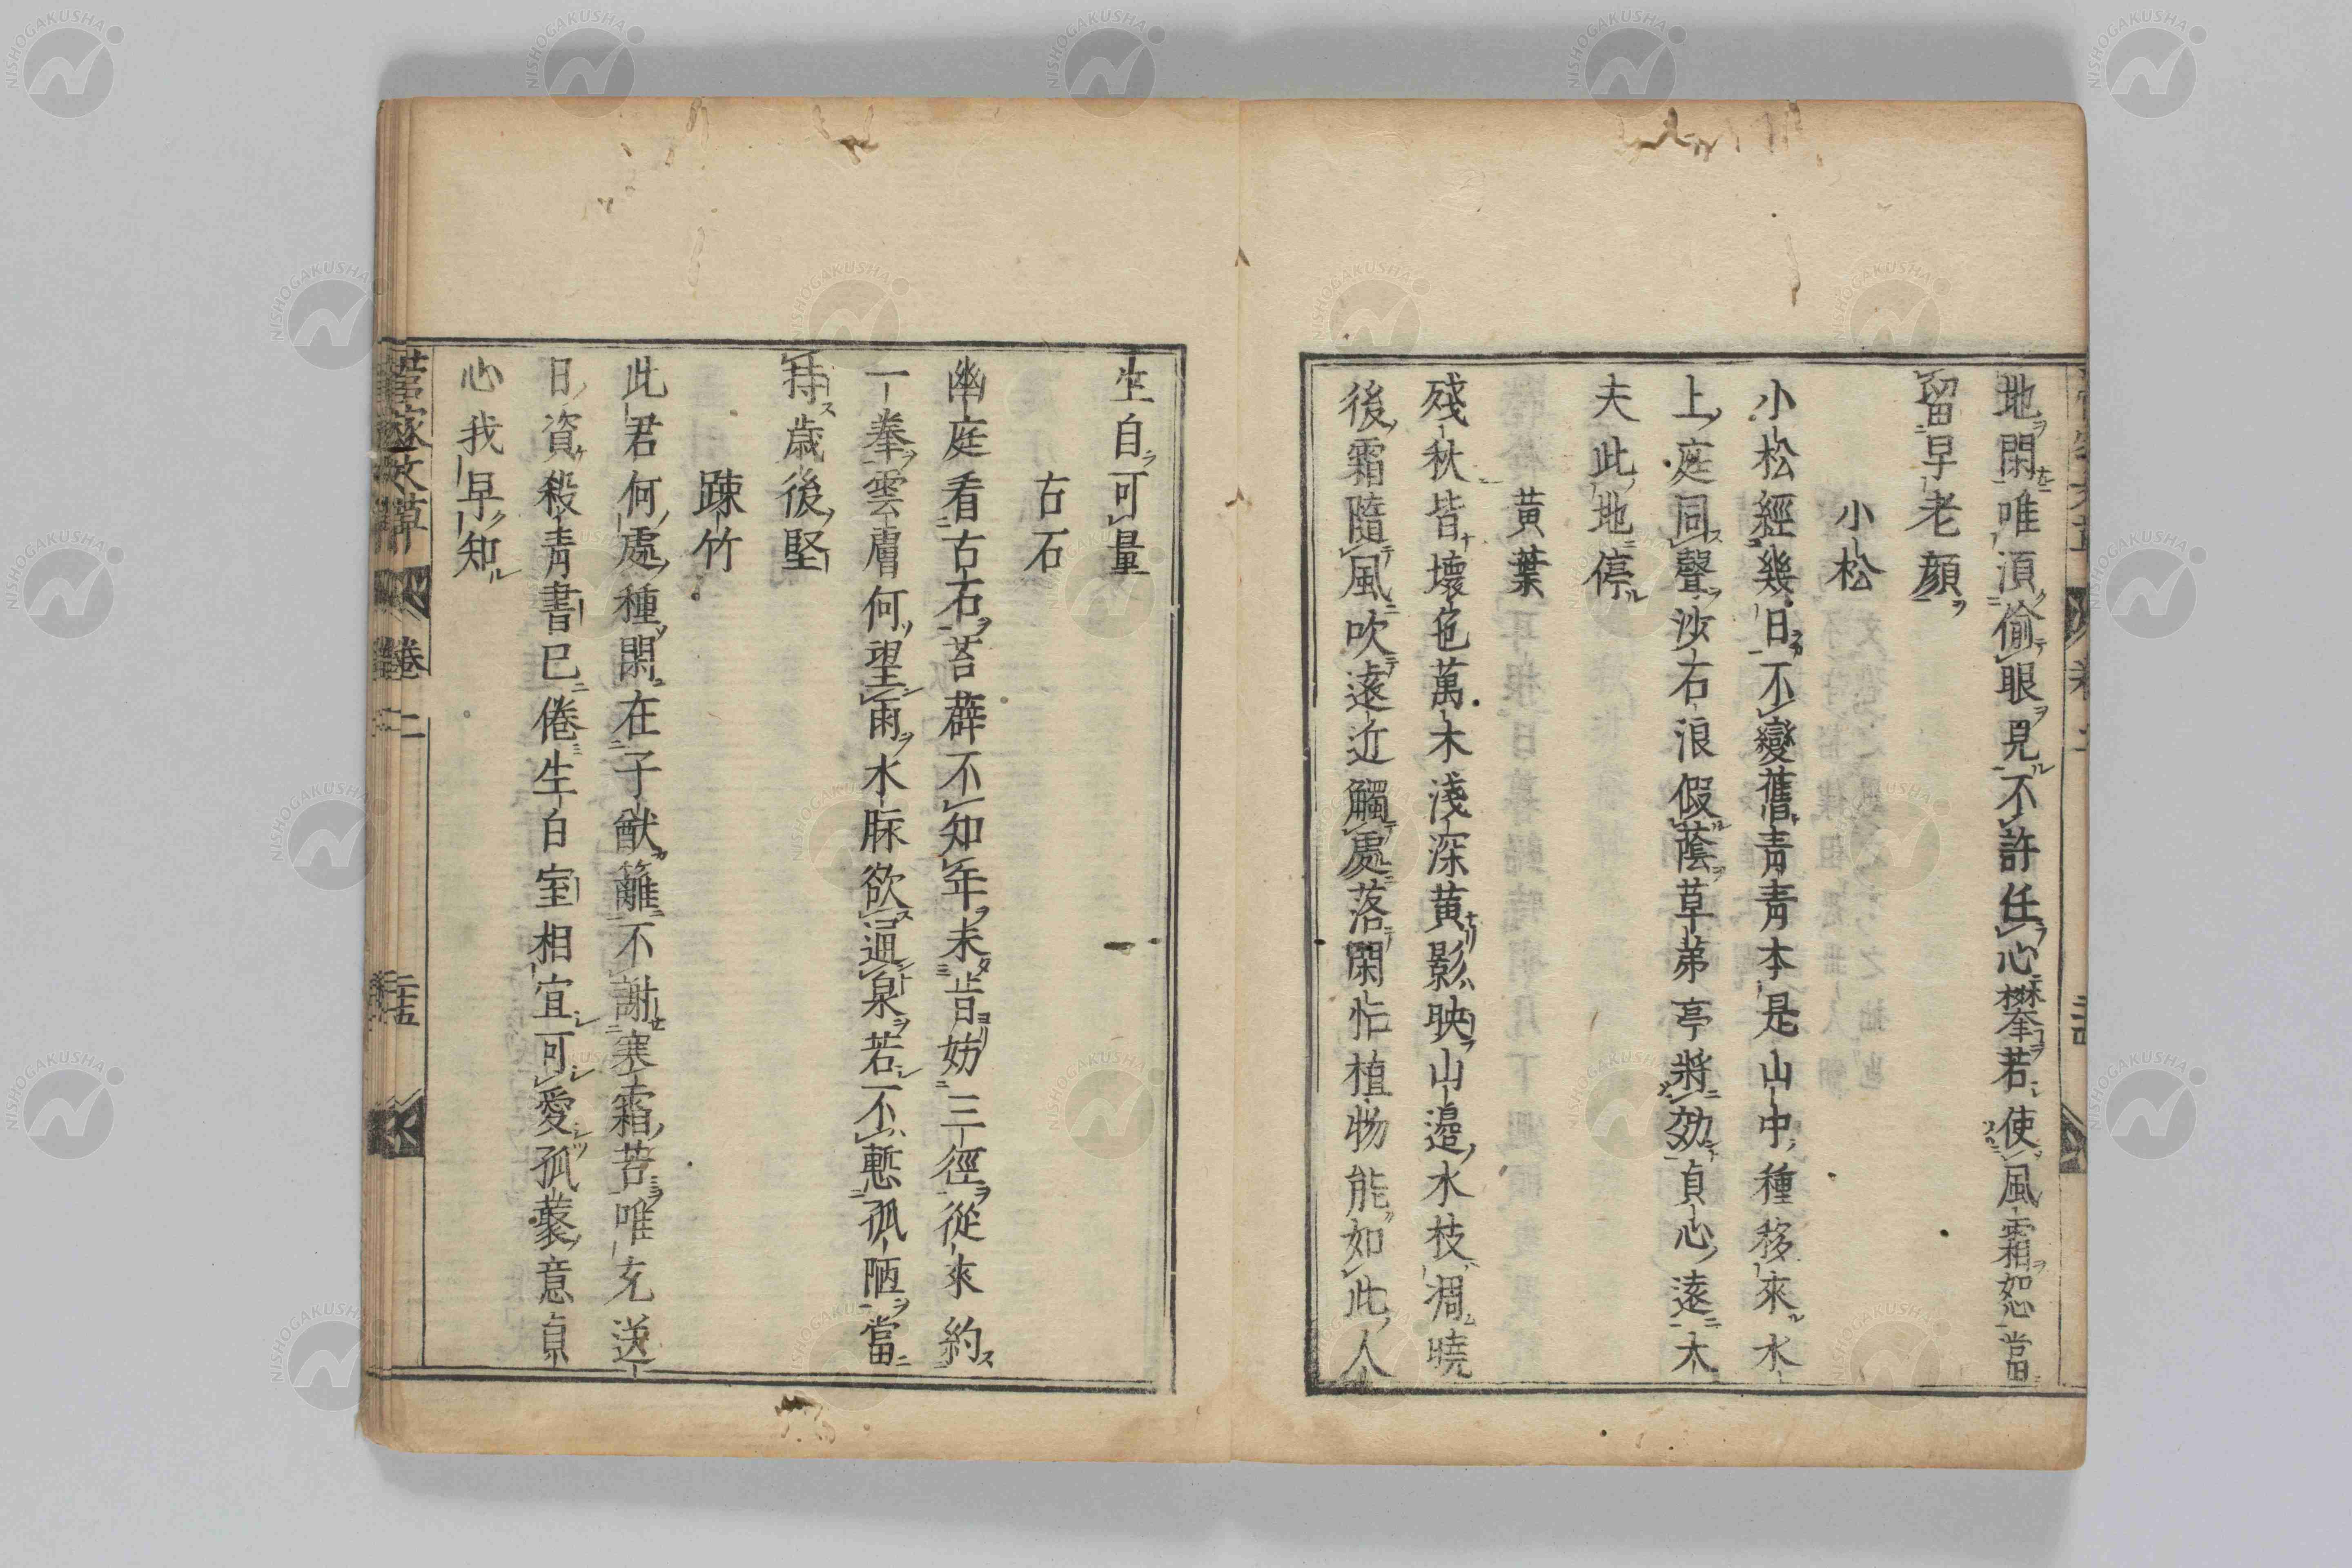 地閑唯湏偷眼見不許任心攀若使風霜恕當
留早老顔
小松
小松經幾日不變舊青青本是山中種移來水
上庭同聲沙石浪假蔭草茅亭將効貞心遠大
夫此地停
黄葉
殘秋皆壞色萬木淺深黄影映山邉水枝凋曉
後霜隨風吹遠近觸處落閑忙植物能如此人
生自可量
古石
幽庭看古石苔蘚不知年未昔妨三徑從來約
一拳雲膚何望雨水脉欲逼泉若不慙孤陋當
持歳後堅
踈竹
此君何處種閑在子猷籬不謝寒霜苦唯充送
日資殺青書已倦生白室相宜可愛孤叢意貞
心我早知
菅家文草 卷二 二十五
NISHOGAKUSHA